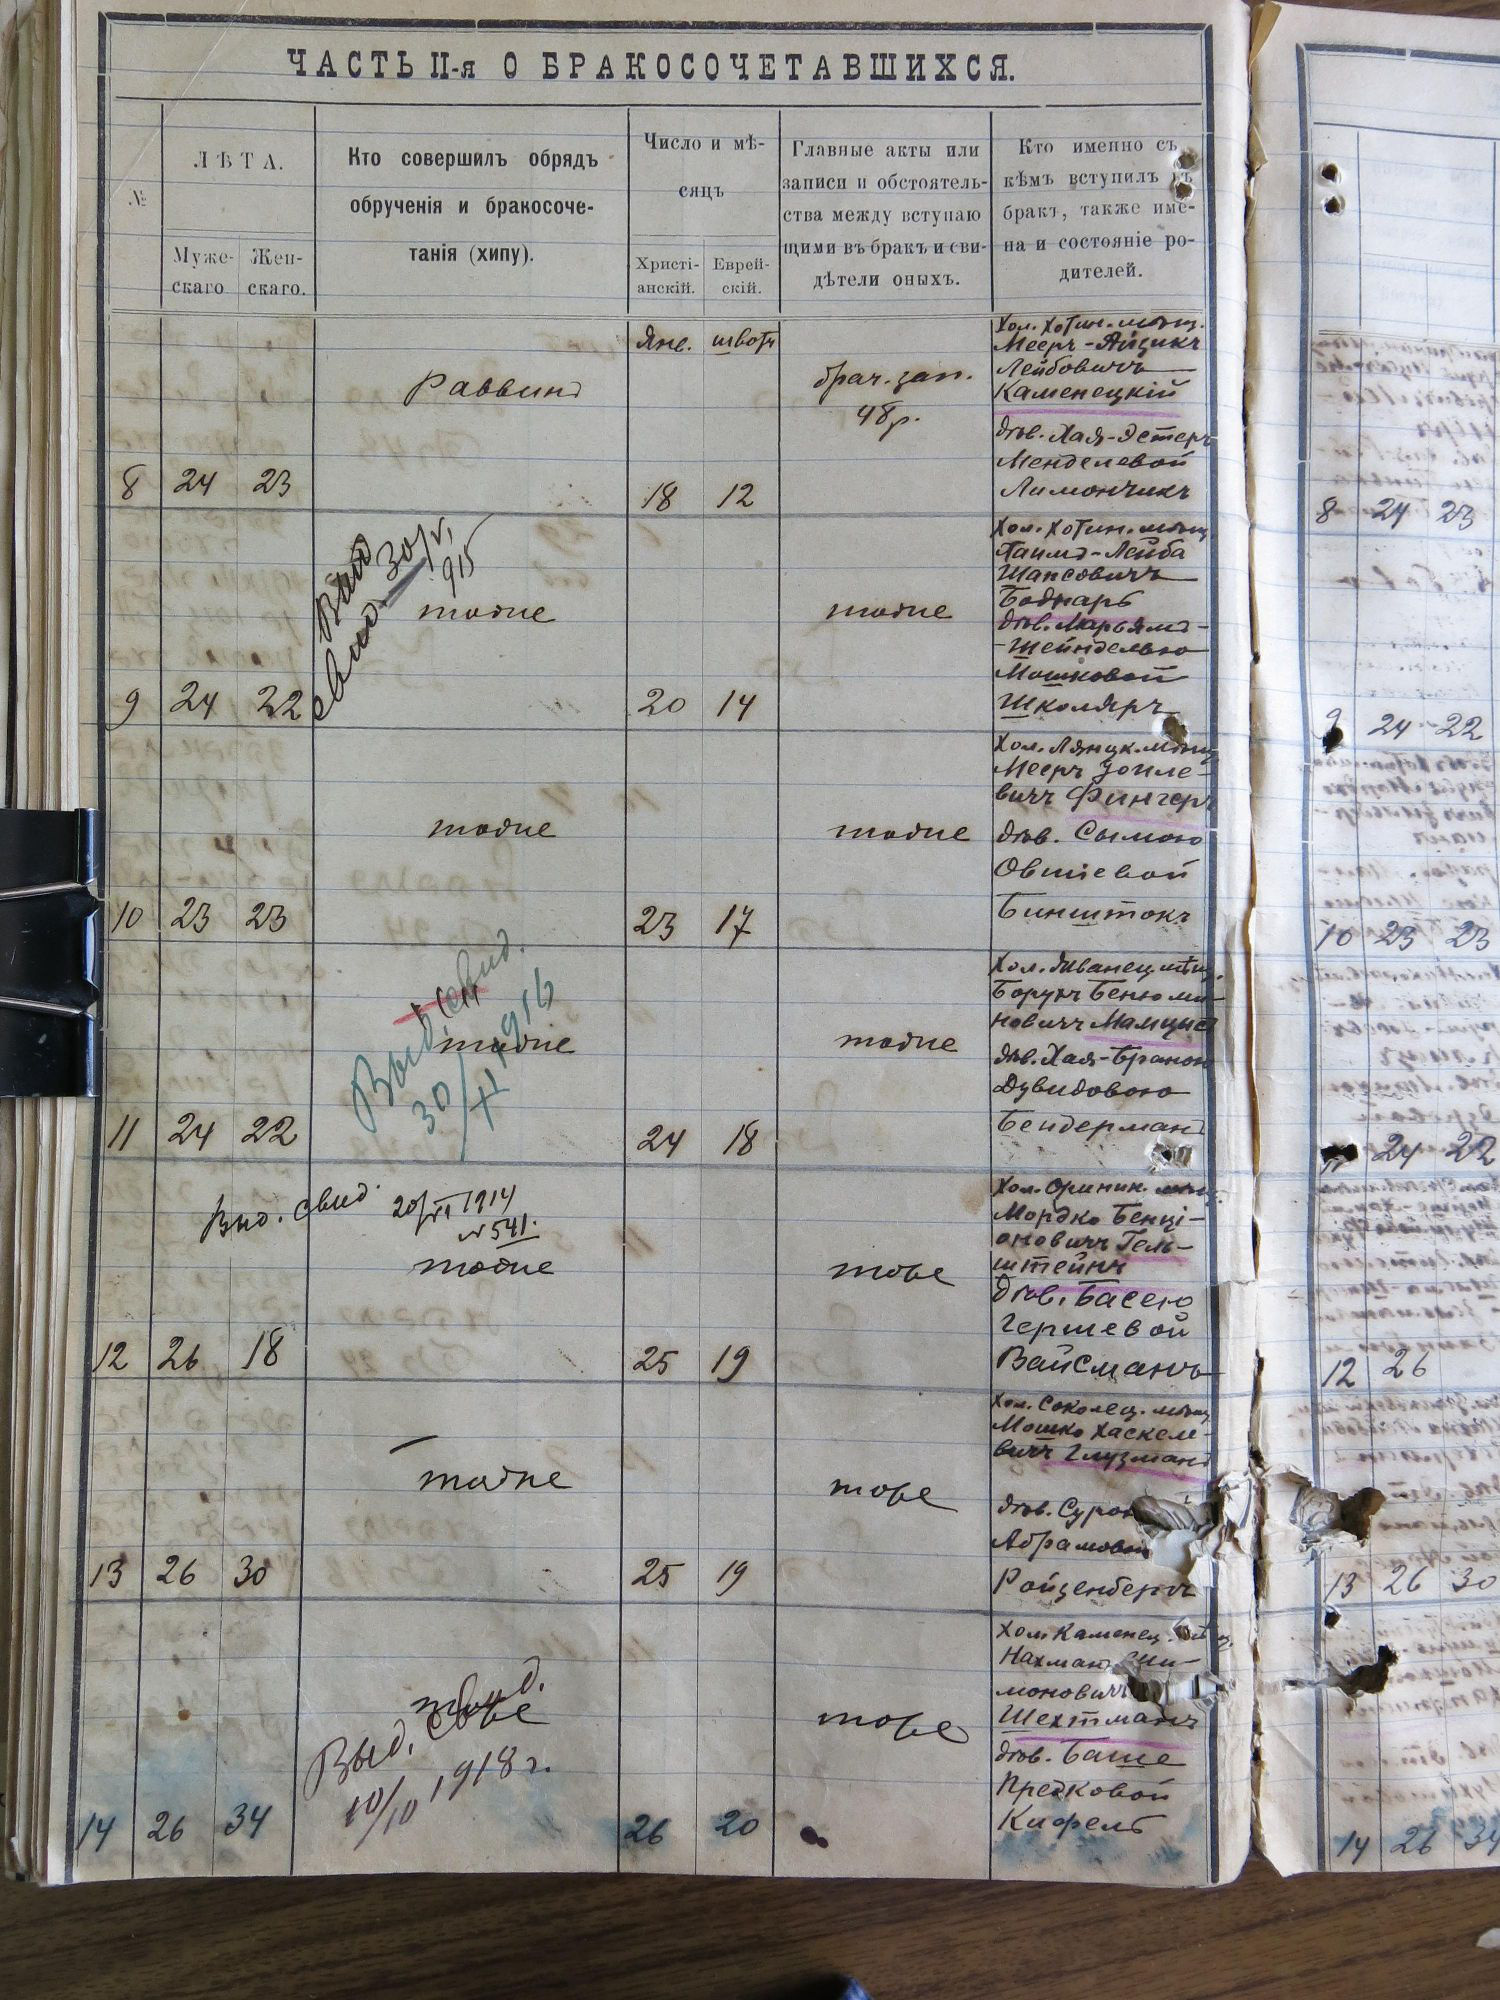 ЧАСТЬ II-я О БРАКОСОЧЕТАВШИХСЯ.
№
ЛѢТА.
Муже-
скаго
Жен-
скаго.
Кто совершилъ обрядъ
обрученія и бракосоче-
танія (хипу).
Число и мѣ-
сяцъ
Христі-
анскій.
Еврей-
скій.
Главные акты или
записи и обстоятель-
ства между вступаю
щими въ бракъ и сви-
дѣтели оныхъ.
Кто именно съ
кѣмъ вступилъ въ
бракъ, также име-
на и состояніе ро-
дителей.
8 24 23
Раввинъ
Янв. шватъ
18 12
брач. зап.
48 р.
Хол. Хотин. мѣщ.
Мееръ-Айзикъ
Лейбовичъ
Каменецкій
дѣв. Хая-Эстеръ
Менделевой
Лимончикъ
9 24 22
Выд
свид. 30/V,
915
тоже
20 14
тоже
Хол. Хотин. мѣщ.
Хаимъ-Лейба
Шапсовичъ
Боднаръ
дѣв. Марьямъ-
-Шейнделью
Мошковой
Школяръ
10 23 23
тоже
23 17
тоже
Хол. Лянцк. мѣщ
Мееръ Зойле-
вичъ Фингеръ
дѣв. Сымою
Овшіевой
Бинштокъ
11 24 22
Выд. свид.
30/X 1916
тоже
24 18
тоже
Хол. Жванец. мѣщ.
Борухъ Бенюми-
новичъ Мамцыс
дѣв. Хая-Браною
Дувидовою
Бендерманъ
12 26 18
Выд. свид. 20/VI 1914
№541.
тоже
25 19
тоже
Хол. Оринин. мѣщ.
Мордко Бенці-
оновичъ Гель-
штейнъ
Дѣв. Басею
Гершевой
Вайсманъ
13 26 30
тоже
25 19
тоже
Хол. Соколец. мѣщ
Мошко Хаскеле-
вичъ Глузманъ
дѣв. Сурою
Абрамовой
Ройзенбергъ
14 26 34
тоже
Выд. свид.
10/10 1918 г.
26 20
тоже
Хол. Каменец. мѣщ.
Нахманъ Ши-
моновичъ
Шехтманъ
дѣв. Баше
Кифель
8 24 23
9 24 22
10 23 23
24 22
12 26
13 26 30
14 26 34